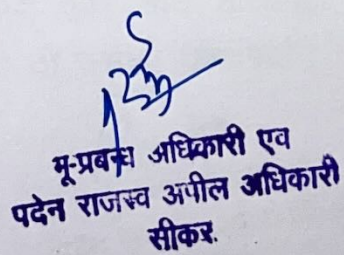 भू-प्रबन्ध अधिकारी एवं
पदेन राजस्व अपील अधिकारी
सीकर.